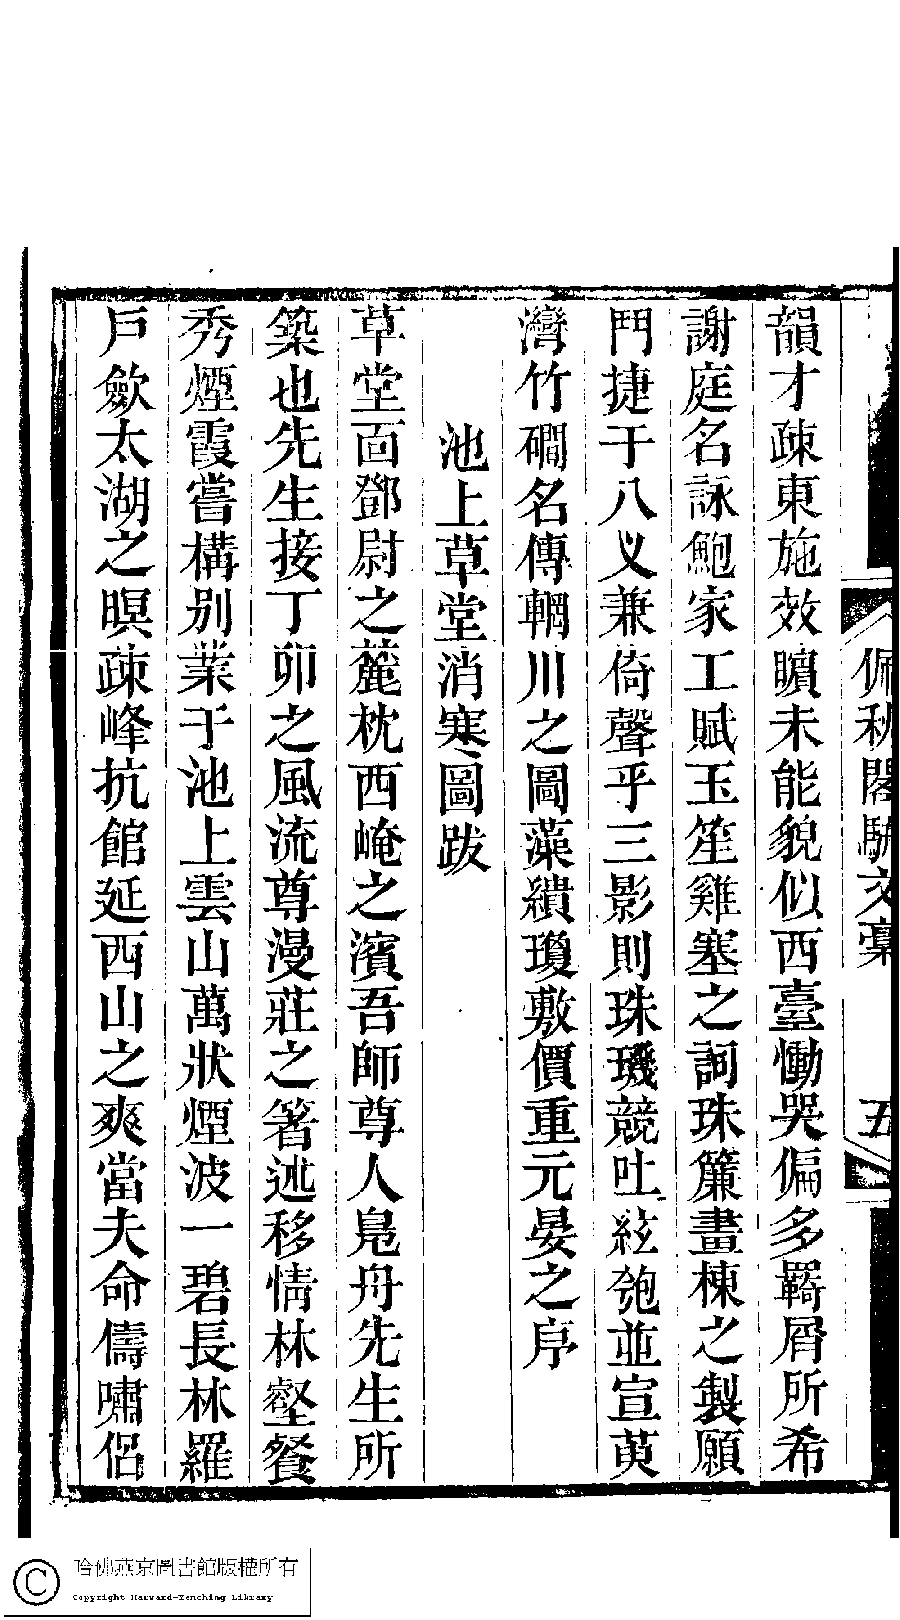 佩秋閣駢文稾
五
韻才疎東施效矉未能貌似西臺慟哭偏多羇屑所希
謝庭名詠鮑家工賦玉笙雞塞之詞珠簾畫棟之製願
鬥捷于八义兼倚聲乎三影則珠璣競吐絃匏並宣萸
灣竹磵名傳輞川之圖藻繢瓊敷價重元晏之序
池上草堂消寒圖跋
草堂面鄧尉之麓枕西崦之濱吾師尊人鳧舟先生所
築也先生接丁卯之風流尊漫莊之箸述移情林壑餐
秀煙霞嘗構别業于池上雲山萬狀煙波一碧長林羅
戶歛太湖之暝疎峰抗館延西山之爽當夫命儔嘯侶
哈佛燕京圖書館版權所有
Copyright Harvard-Yenching Library